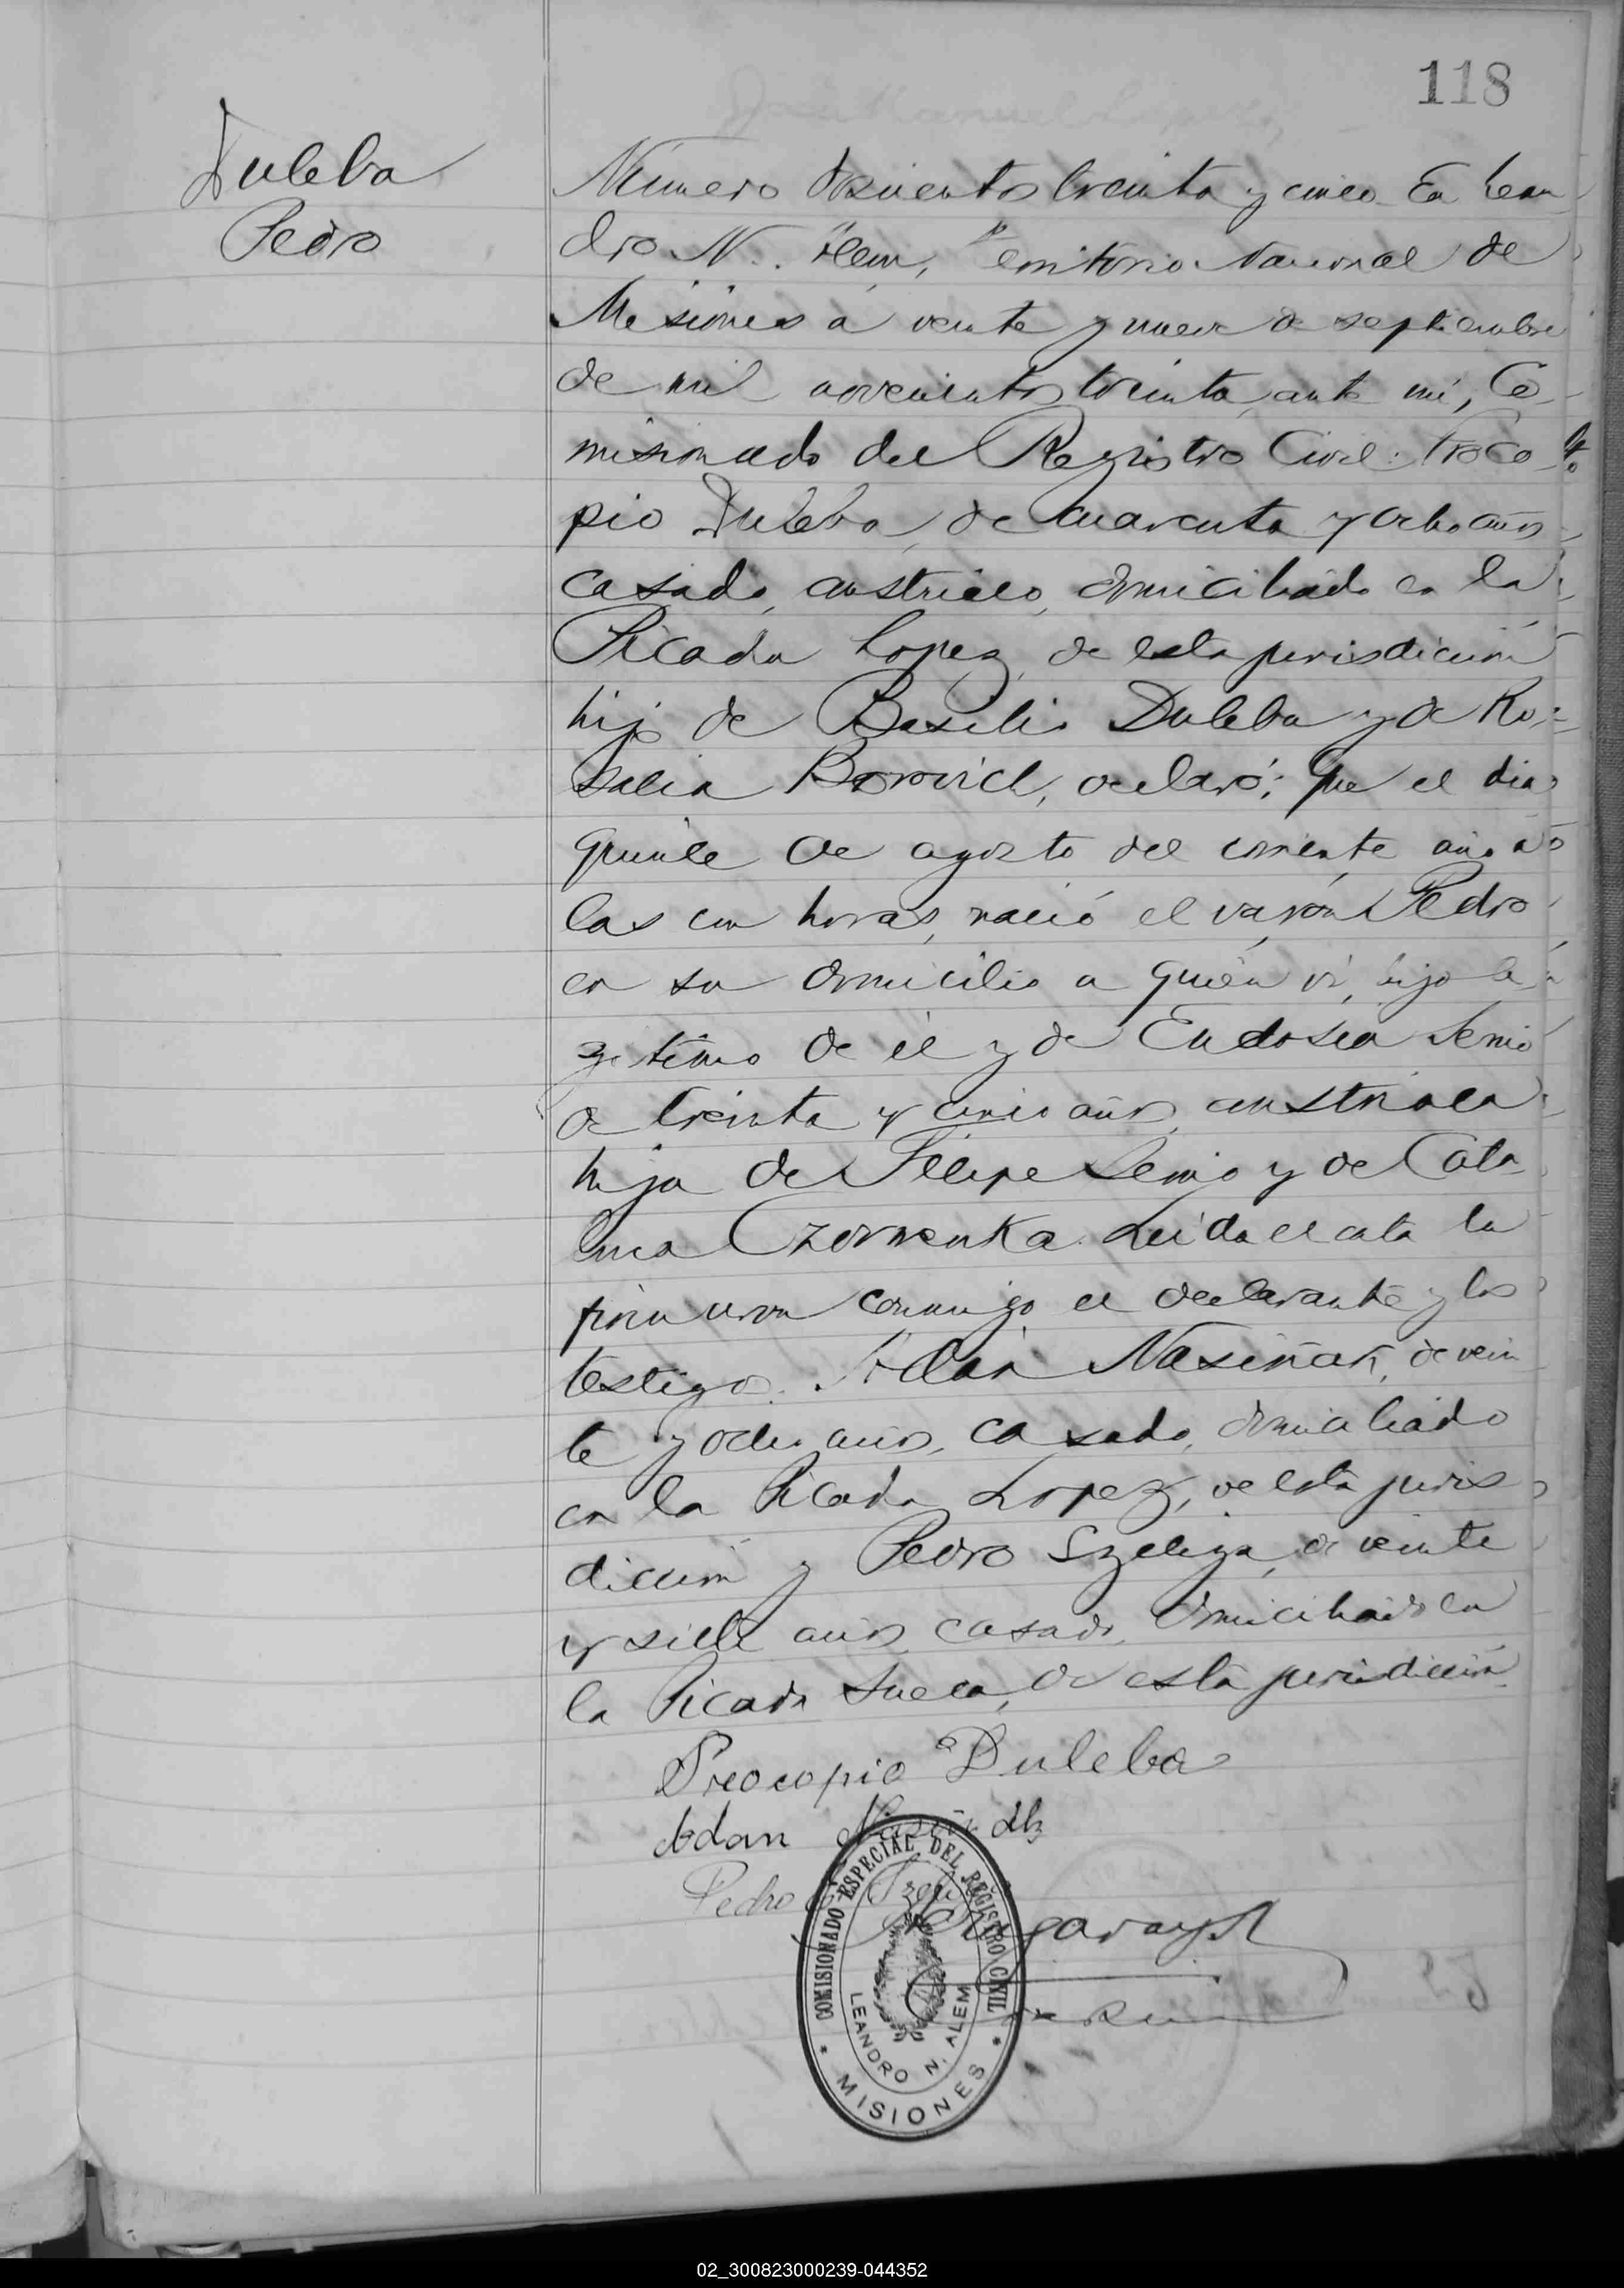 118
Duleba
Pedro
Número doscientos treinta y cinco. En Lean
dro N. Alem, Territorio Nacional de
Misiones a veinte y nueve de septiembre
de mil novecientos treinta, ante mi, Co
misionado del Registro Civil: Proco
pio Duleba, de cuarenta y ocho años
casado, austriaco, domiciliado en la
Picada Lopez, de esta jurisdicción
hijo de Basilio Duleba y de Ro=
salia Borovich, declaró; Que el dia
quince de agosto del corriente año a
las horas, nació el varón Pedro
en su domicilio a quién vi, hijo le
gitimo de él y de Eudosia Semio
de treinta y cinco años, austriaca
hija de Felipe Semio y de Cata
lina Czornenka. Leida el acta la
firmaron conmigo el declarante y los
testigos. Adán Nasiñak, de vein
te y ocho años, casado, domiciliado
en la Picada Lopez, de esta juris
dicción y Pedro Szeliga, de veinte
y siete años, casado, domiciliado en
la Picada Sueca, de esta jurisdicción
Procopio Duleba
Adan
Pedro
COMISIONADO ESPECIAL DEL REGISTRO CIVIL
LEANDRO N. ALEM
* MISIONES *
02_300823000239-044352